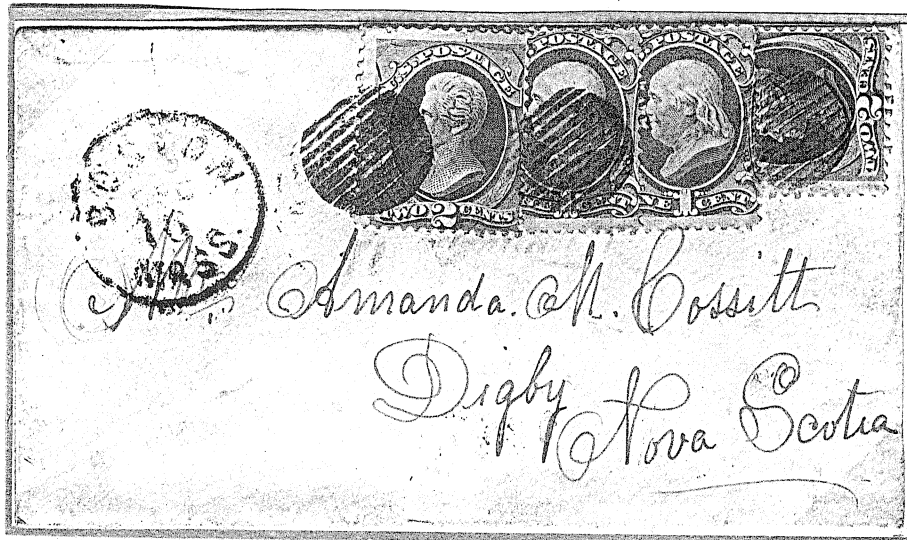 U.S. POSTAGE
TWO 2 CENTS
POSTAGE
POSTAGE
ONE 1 CENT
BOSTON
10
MASS.
Amanda. M. Cossitt
Digby
Nova Scotia